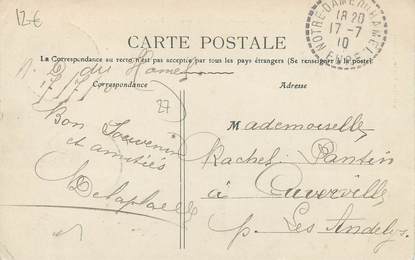 12€
CARTE POSTALE
La Correspondance au recto n'est pas acceptée par tous les pays étrangers (Se renseigner à la poste)
NOTRE DAME DU HAMEL
18 20
17-7
10
EURE
N. D du Hamel
17/7/10
Correspondance
Adresse
27
Bon Souvenir
et amitiés
Delaplace
Mademoiselle,
Rachel Pantin
à Cuverville
p. Les Andelys